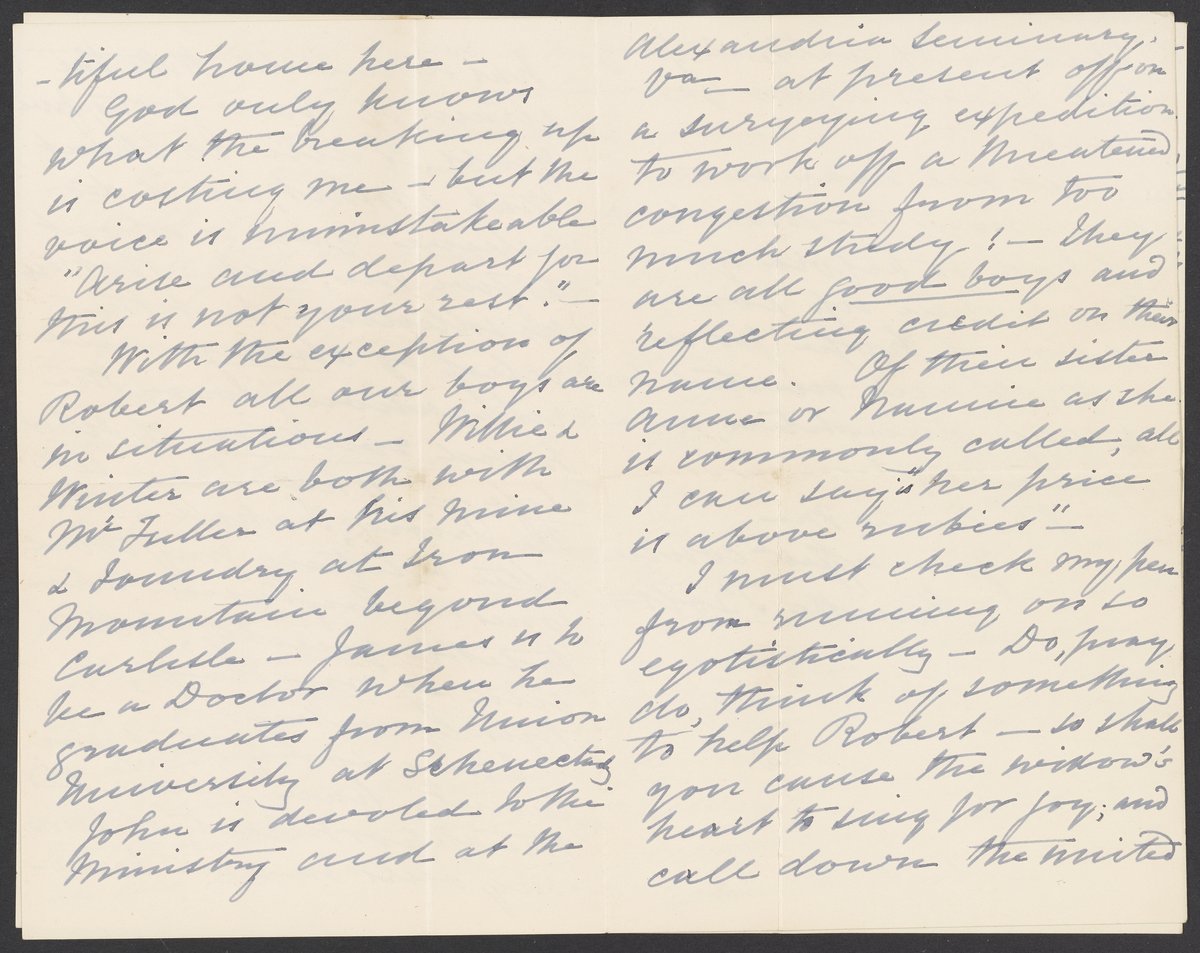 -tiful home here -
God only knows
what the breaking up
is costing me - but the
voice is unmistakeable
"Arise and depart for
this is not your rest." -
With the exception of
Robert all our boys are
in situations - Willie &
Winter are both with
Mr Fuller at his Mine
& Foundry at Iron
Mountain beyond
Carlisle - James is to
be a Doctor when he
graduates from Union
University at Schenectady
John is devoted to the
Ministry and at the
Alexandria Seminary,
Va - at present off on
a surveying expedition
to work off a threatened
congestion from too
much study! - They
are all good boys and
reflecting credit on their
name. Of their sister
Anne or Nannie as she
is commonly called, all
I can say is "her price
is above rubies" -
I must check my pen
from running on so
egotistically - Do, pray
do, think of something
to help Robert - so shall
you cause the widow's
heart to sing for joy; and
call down the united